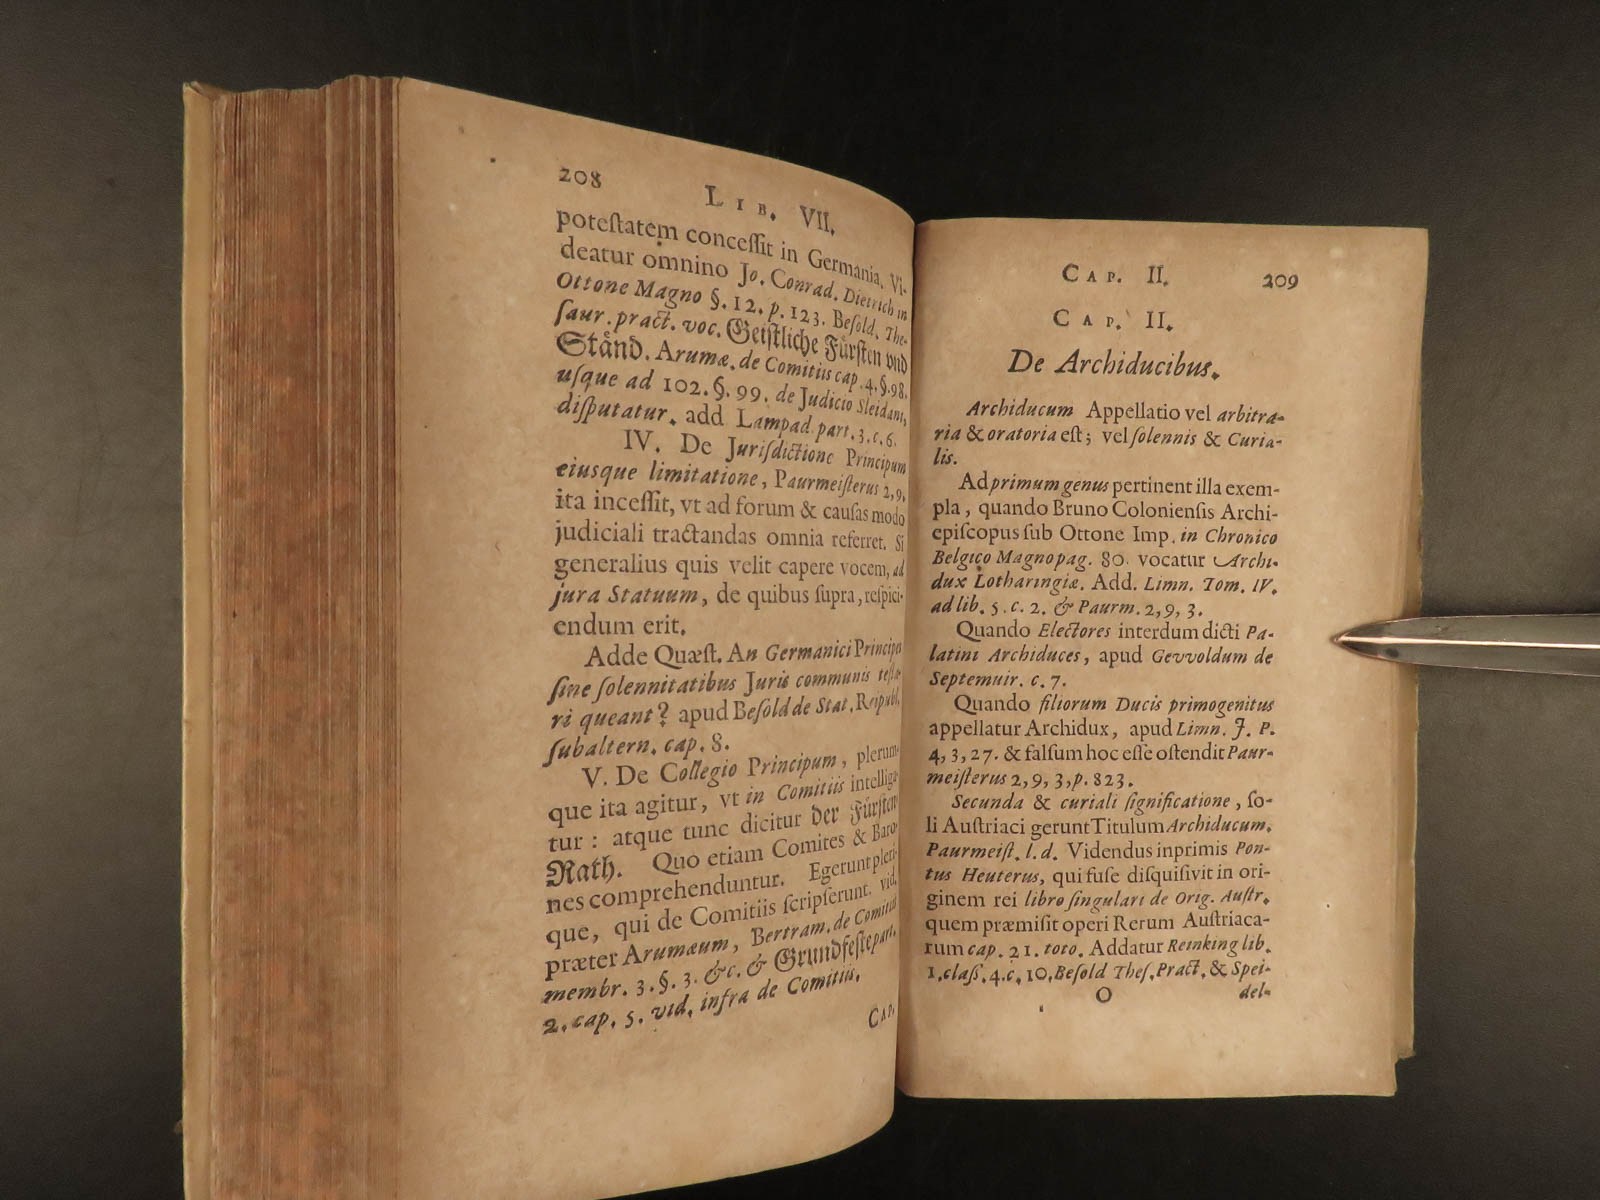 208
LIB. VII.
poteſtatem conceſſit in Germania. Vi-
deatur omnino Jo. Conrad. Dietrich in
Ottone Magno §. 12. p. 123. Beſold. The-
ſaur. pract. voc. Geiſtliche Fürſten vnd
Stånd. Arumæ. de Comitiis cap. 4. §. 98.
uſque ad 102. §. 99. de Judicio Sleidani,
diſputatur. add Lampad. part. 3. c. 6.
IV. De Juriſdictione Principum
eiusque limitatione, Paurmeiſterus 2, 9,
ita inceſſit, vt ad forum & cauſas modo
judiciali tractandas omnia referret. Si
generalius quis velit capere vocem, ad
jura Statuum, de quibus ſupra, reſpici-
endum erit.
Adde Quæſt. An Germanici Principes
ſine ſolennitatibus Juris communis teſta-
ri queant? apud Beſold de Stat. Reipubl.
ſubaltern. cap. 8.
V. De Collegio Principum, plerum-
que ita agitur, vt in Comitiis intelliga-
tur: atque tunc dicitur der Fürſten
Rath. Quo etiam Comites & Baro-
nes comprehenduntur. Egerunt pleri-
que, qui de Comitiis ſcripſerunt. vid.
præter Arumæum, Bertram. de Comitiis
membr. 3. §. 3. &c. & Grundfeſte part.
2. cap. 5. vid. infra de Comitiis.
CAP.
CAP. II. 209
CAP. II.
De Archiducibus.
Archiducum Appellatio vel arbitra-
ria & oratoria eſt; vel ſolennis & Curia-
lis.
Ad primum genus pertinent illa exem-
pla, quando Bruno Colonienſis Archi-
epiſcopus ſub Ottone Imp. in Chronico
Belgico Magno pag. 80. vocatur Archi-
dux Lotharingiæ. Add. Limn. Tom. IV.
ad lib. 5. c. 2. & Paurm. 2, 9, 3.
Quando Electores interdum dicti Pa-
latini Archiduces, apud Gevvoldum de
Septemuir. c. 7.
Quando filiorum Ducis primogenitus
appellatur Archidux, apud Limn. J. P.
4, 3, 27. & falſum hoc eſſe oſtendit Paur-
meiſterus 2, 9, 3, p. 823.
Secunda & curiali ſignificatione, ſo-
li Auſtriaci gerunt Titulum Archiducum.
Paurmeiſt. l. d. Videndus inprimis Pon-
tus Heuterus, qui fuſe diſquiſivit in ori-
ginem rei libro ſingulari de Orig. Auſtr.
quem præmiſit operi Rerum Auſtriaca-
rum cap. 21. toto. Addatur Reinking lib.
1. claſſ. 4. c. 10. Beſold Theſ. Pract. & Spei-
O del-